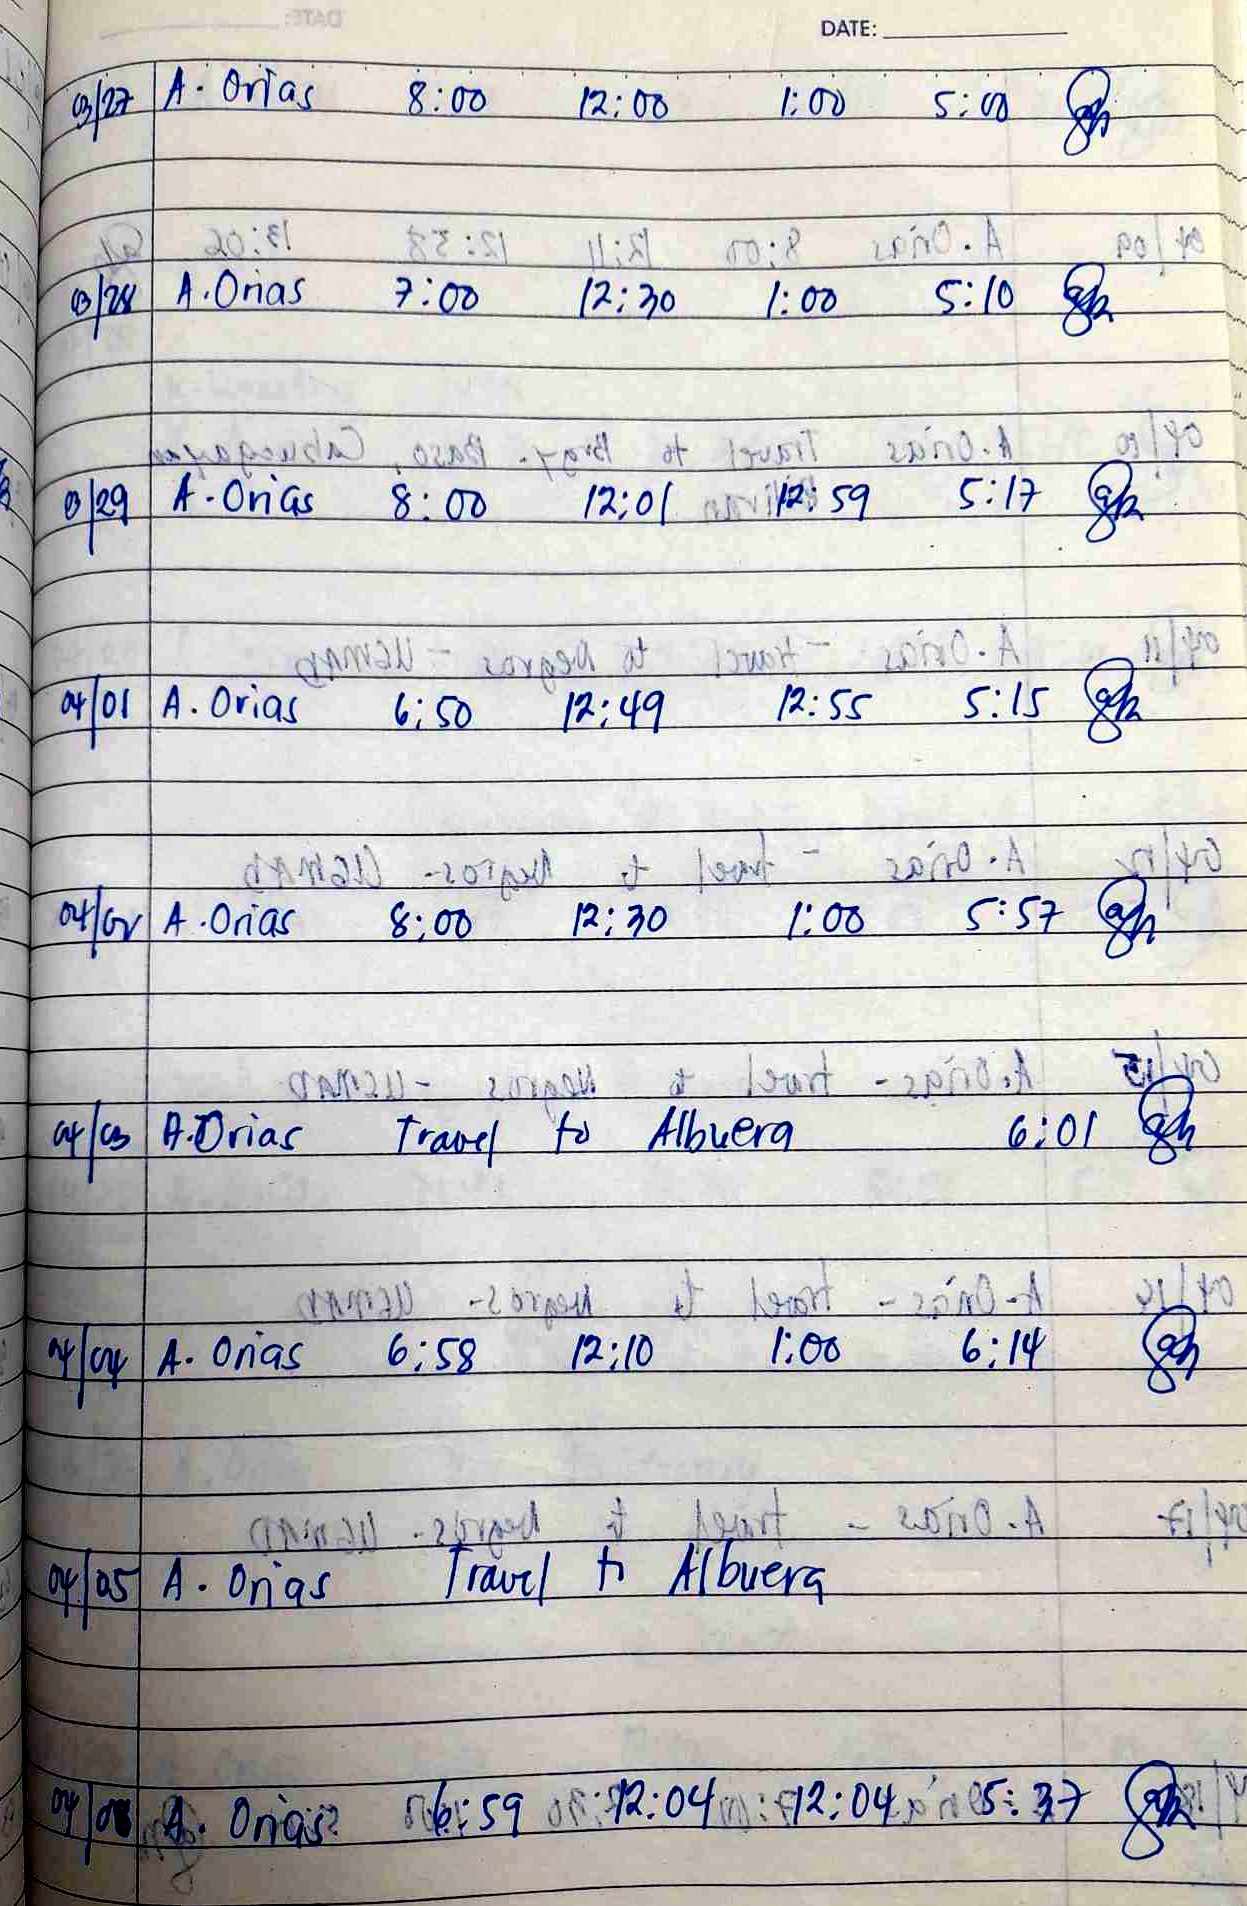 DATE:
03/27 A. Orias 8:00 12:00 1:00 5:00
03/28 A. Orias 7:00 12:30 1:00 5:10
03/29 A. Orias 8:00 12:01 12:59 5:17
04/01 A. Orias 6:50 12:49 12:55 5:15
04/02 A. Orias 8:00 12:30 1:00 5:57
04/03 A. Orias Travel to Albuera 6:01
04/04 A. Orias 6:58 12:10 1:00 6:14
04/05 A. Orias Travel to Albuera
04/08 A. Orias 6:59 12:04 12:04 5:37